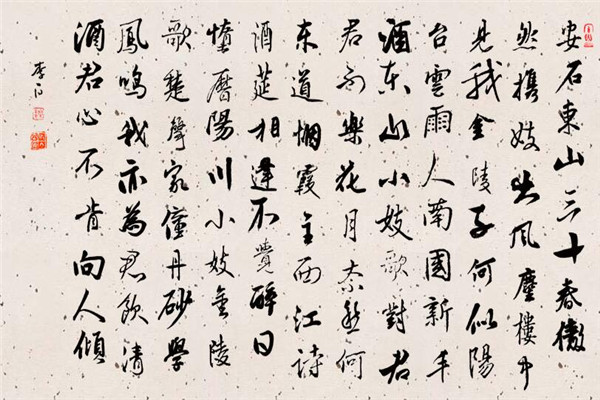 安石東山三十春傲
然携妓出风塵樓中
見我金陵子何似陽
台雲雨人南國新丰
酒东山小妓歌對君
君不樂花月奈愁何
东道烟霞主西江诗
酒筵相逢不覺醉日
墮曆陽川小妓金陵
歌楚聲家僮丹砂學
鳳鳴我亦為君飲清
酒君心不肯向人傾
李白